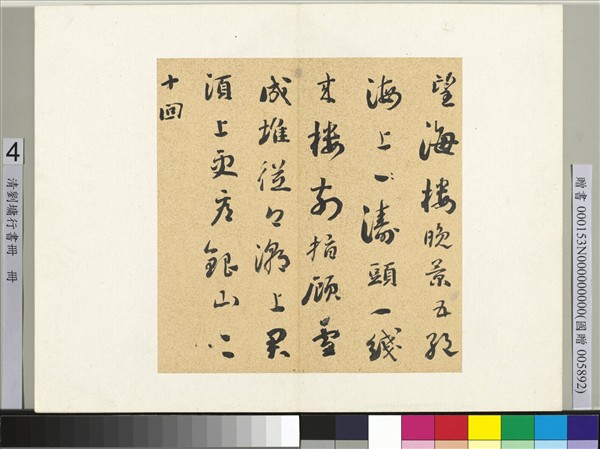 望海樓晚景五絕
海上一濤頭一綫
來樓前指顧雪
成堆從今潮上君
須上更看銀山二
十回
4
清劉墉行書冊 冊
贈書 000153N000000000(國贈 005892)